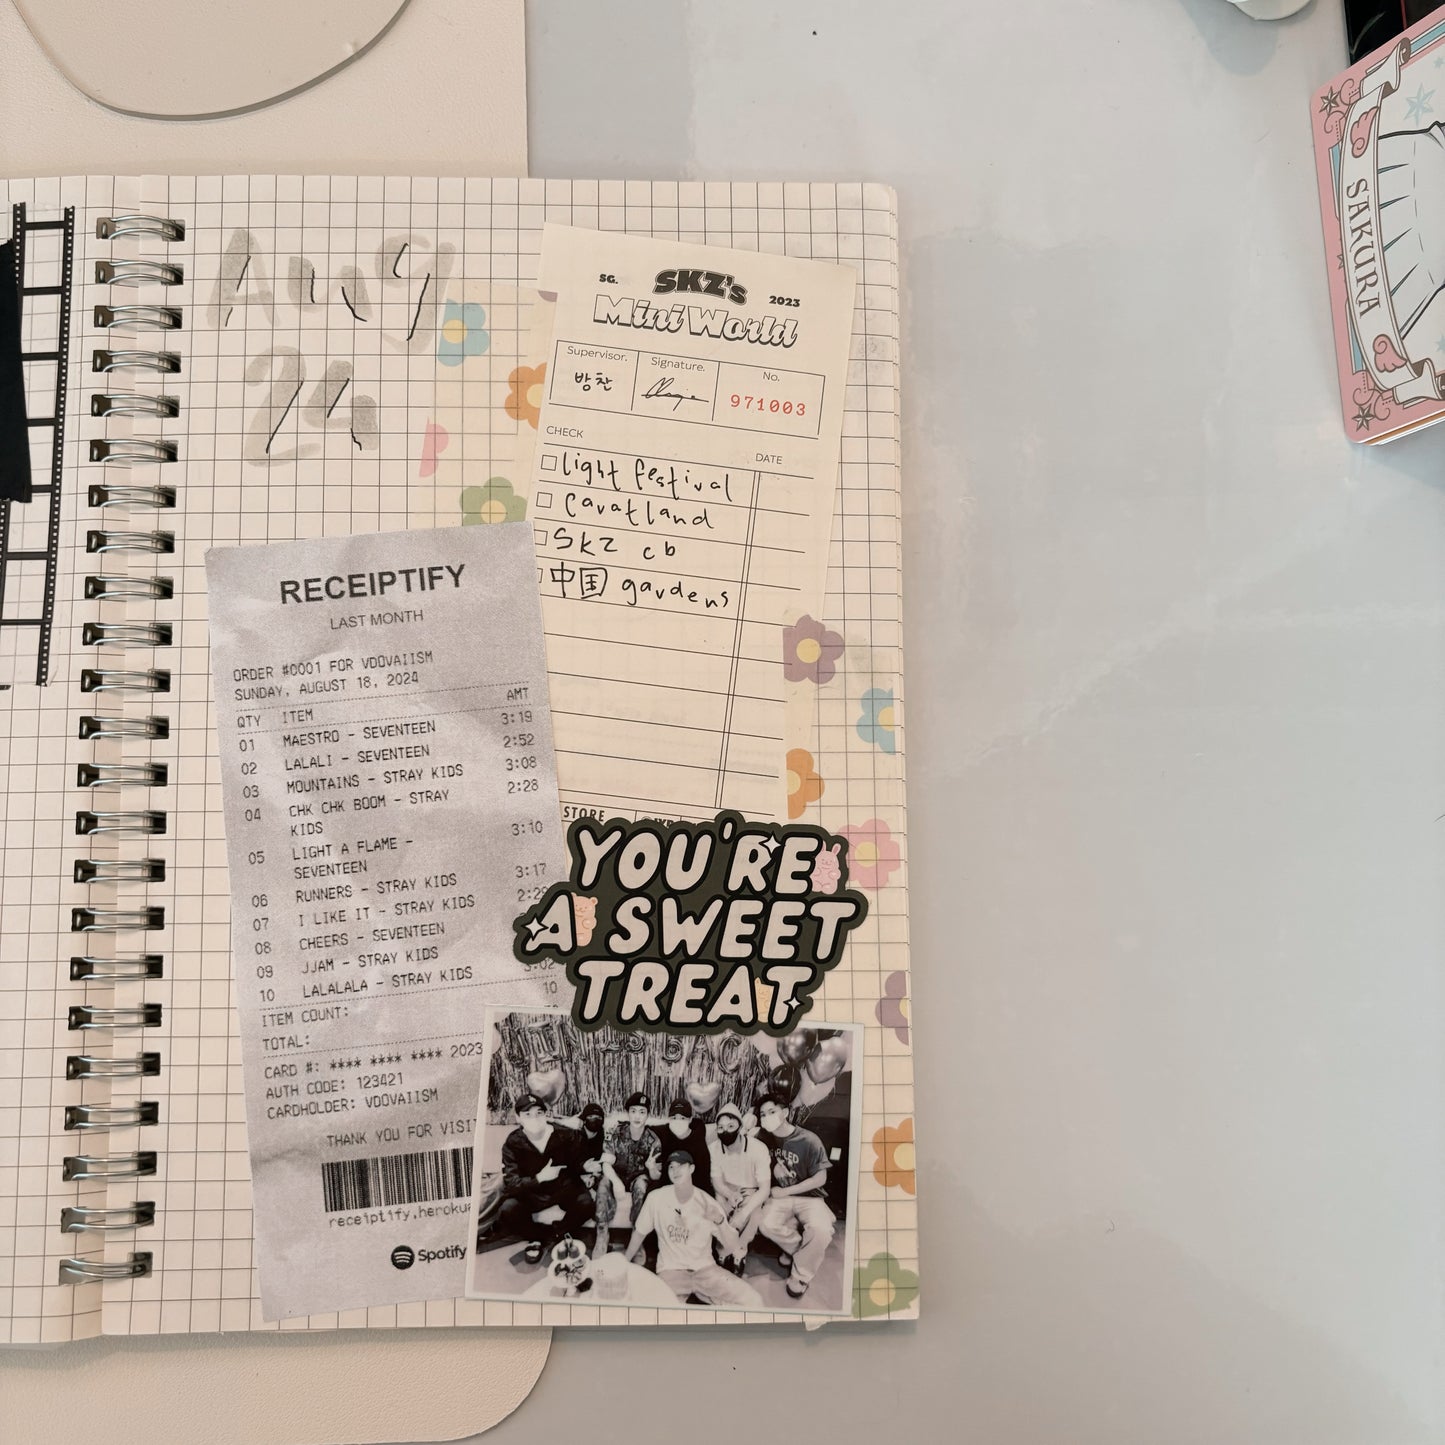 Aug
24
SG. SKZ's 2023
Mini World
Supervisor. Signature. No.
방찬 971003
CHECK DATE
light festival
Caratland
SKZ cb
中国 gardens
STORE
YOU'RE
A SWEET
TREAT
RECEIPTIFY
LAST MONTH
ORDER #0001 FOR VDOVAIISM
SUNDAY, AUGUST 18, 2024
QTY ITEM AMT
01 MAESTRO - SEVENTEEN 3:19
02 LALALI - SEVENTEEN 2:52
03 MOUNTAINS - STRAY KIDS 3:08
04 CHK CHK BOOM - STRAY 2:28
KIDS
05 LIGHT A FLAME - 3:10
SEVENTEEN
06 RUNNERS - STRAY KIDS 3:17
07 I LIKE IT - STRAY KIDS
08 CHEERS - SEVENTEEN
09 JJAM - STRAY KIDS
10 LALALALA - STRAY KIDS 3:02
ITEM COUNT: 10
TOTAL:
CARD #: **** **** **** 2023
AUTH CODE: 123421
CARDHOLDER: VDOVAIISM
THANK YOU FOR
receiptify.heroku
Spotify
SAKURA